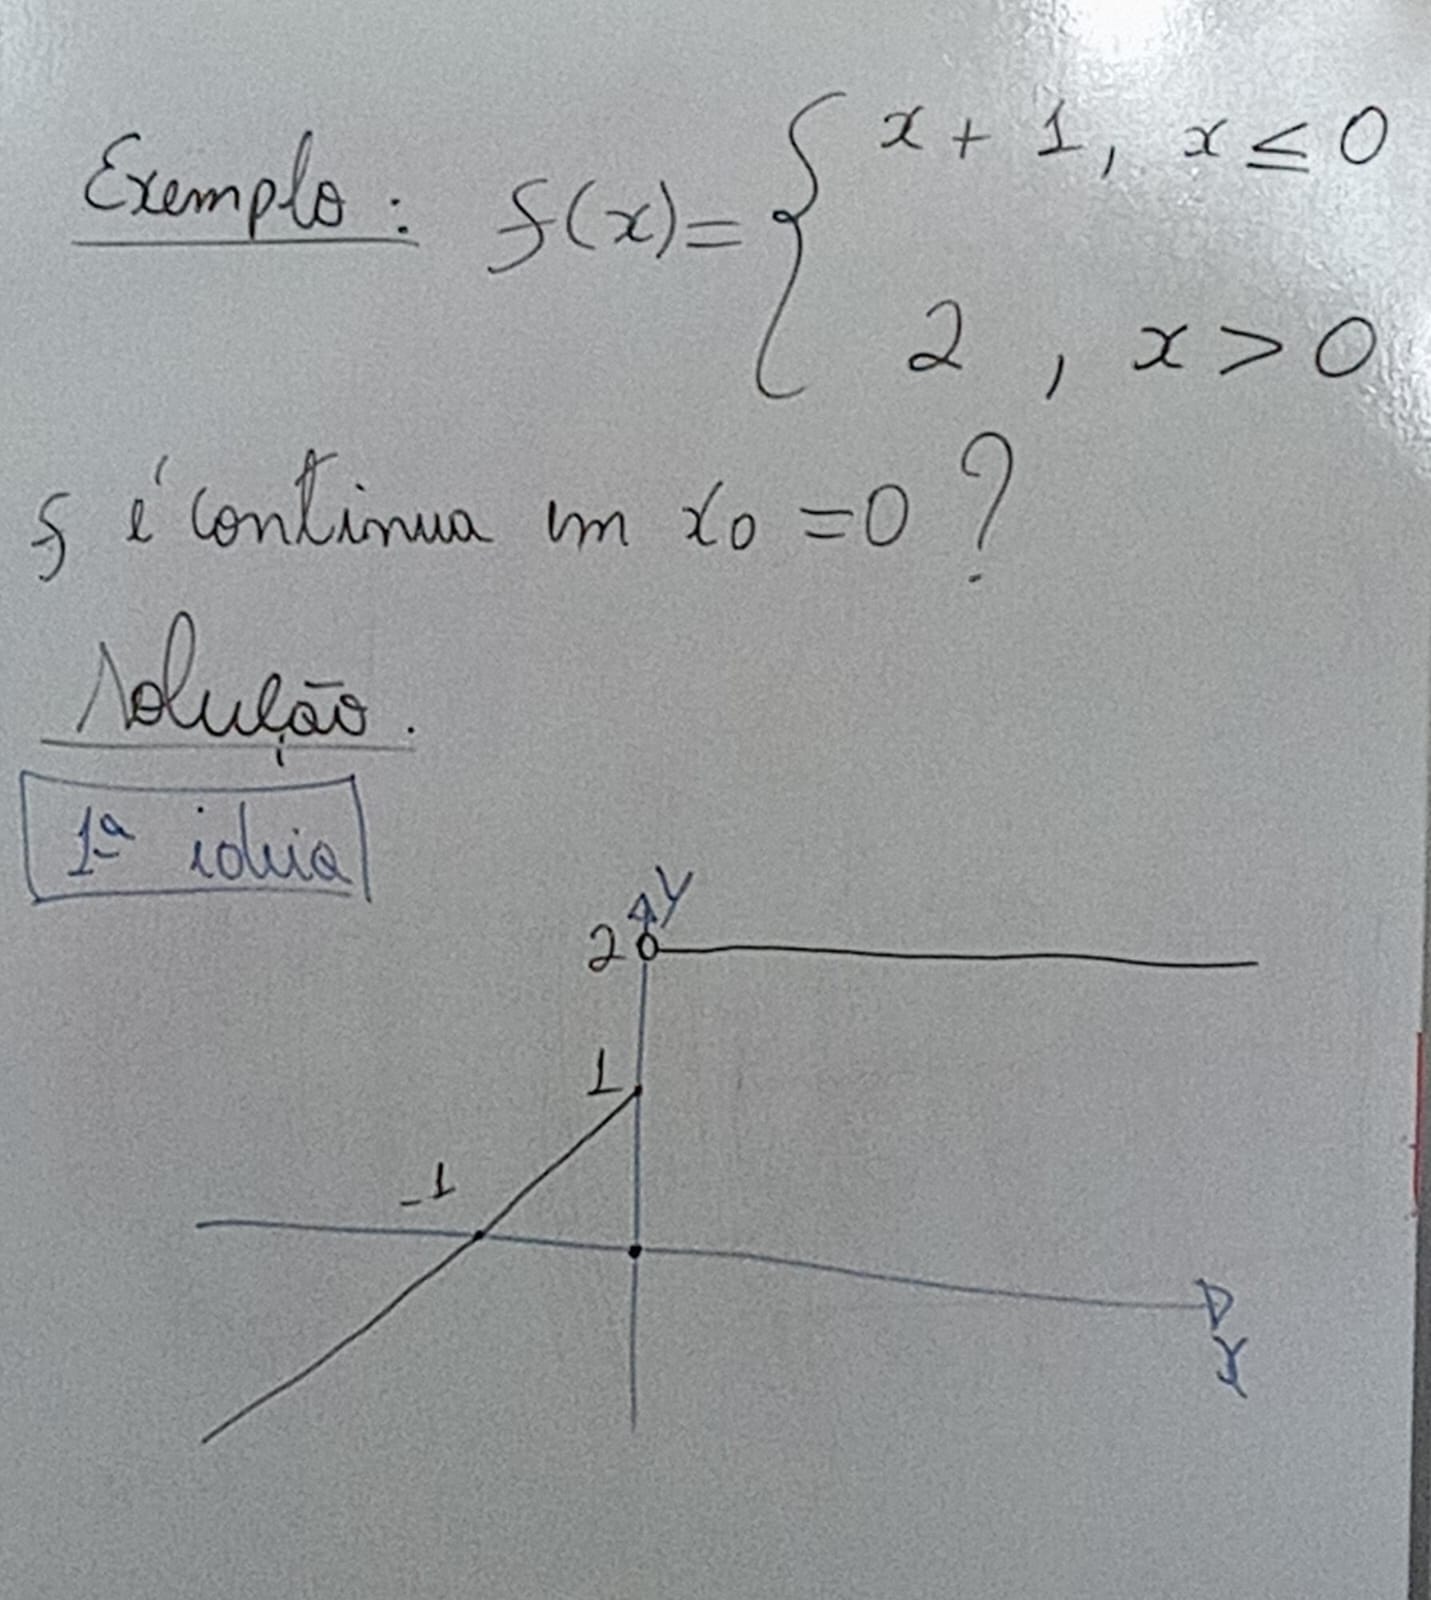 Exemplo: f(x)= { x + 1, x ≤ 0
2 , x > 0
f é contínua em x0 = 0 ?
Solução.
1ª ideia
y
2
1
-1
x